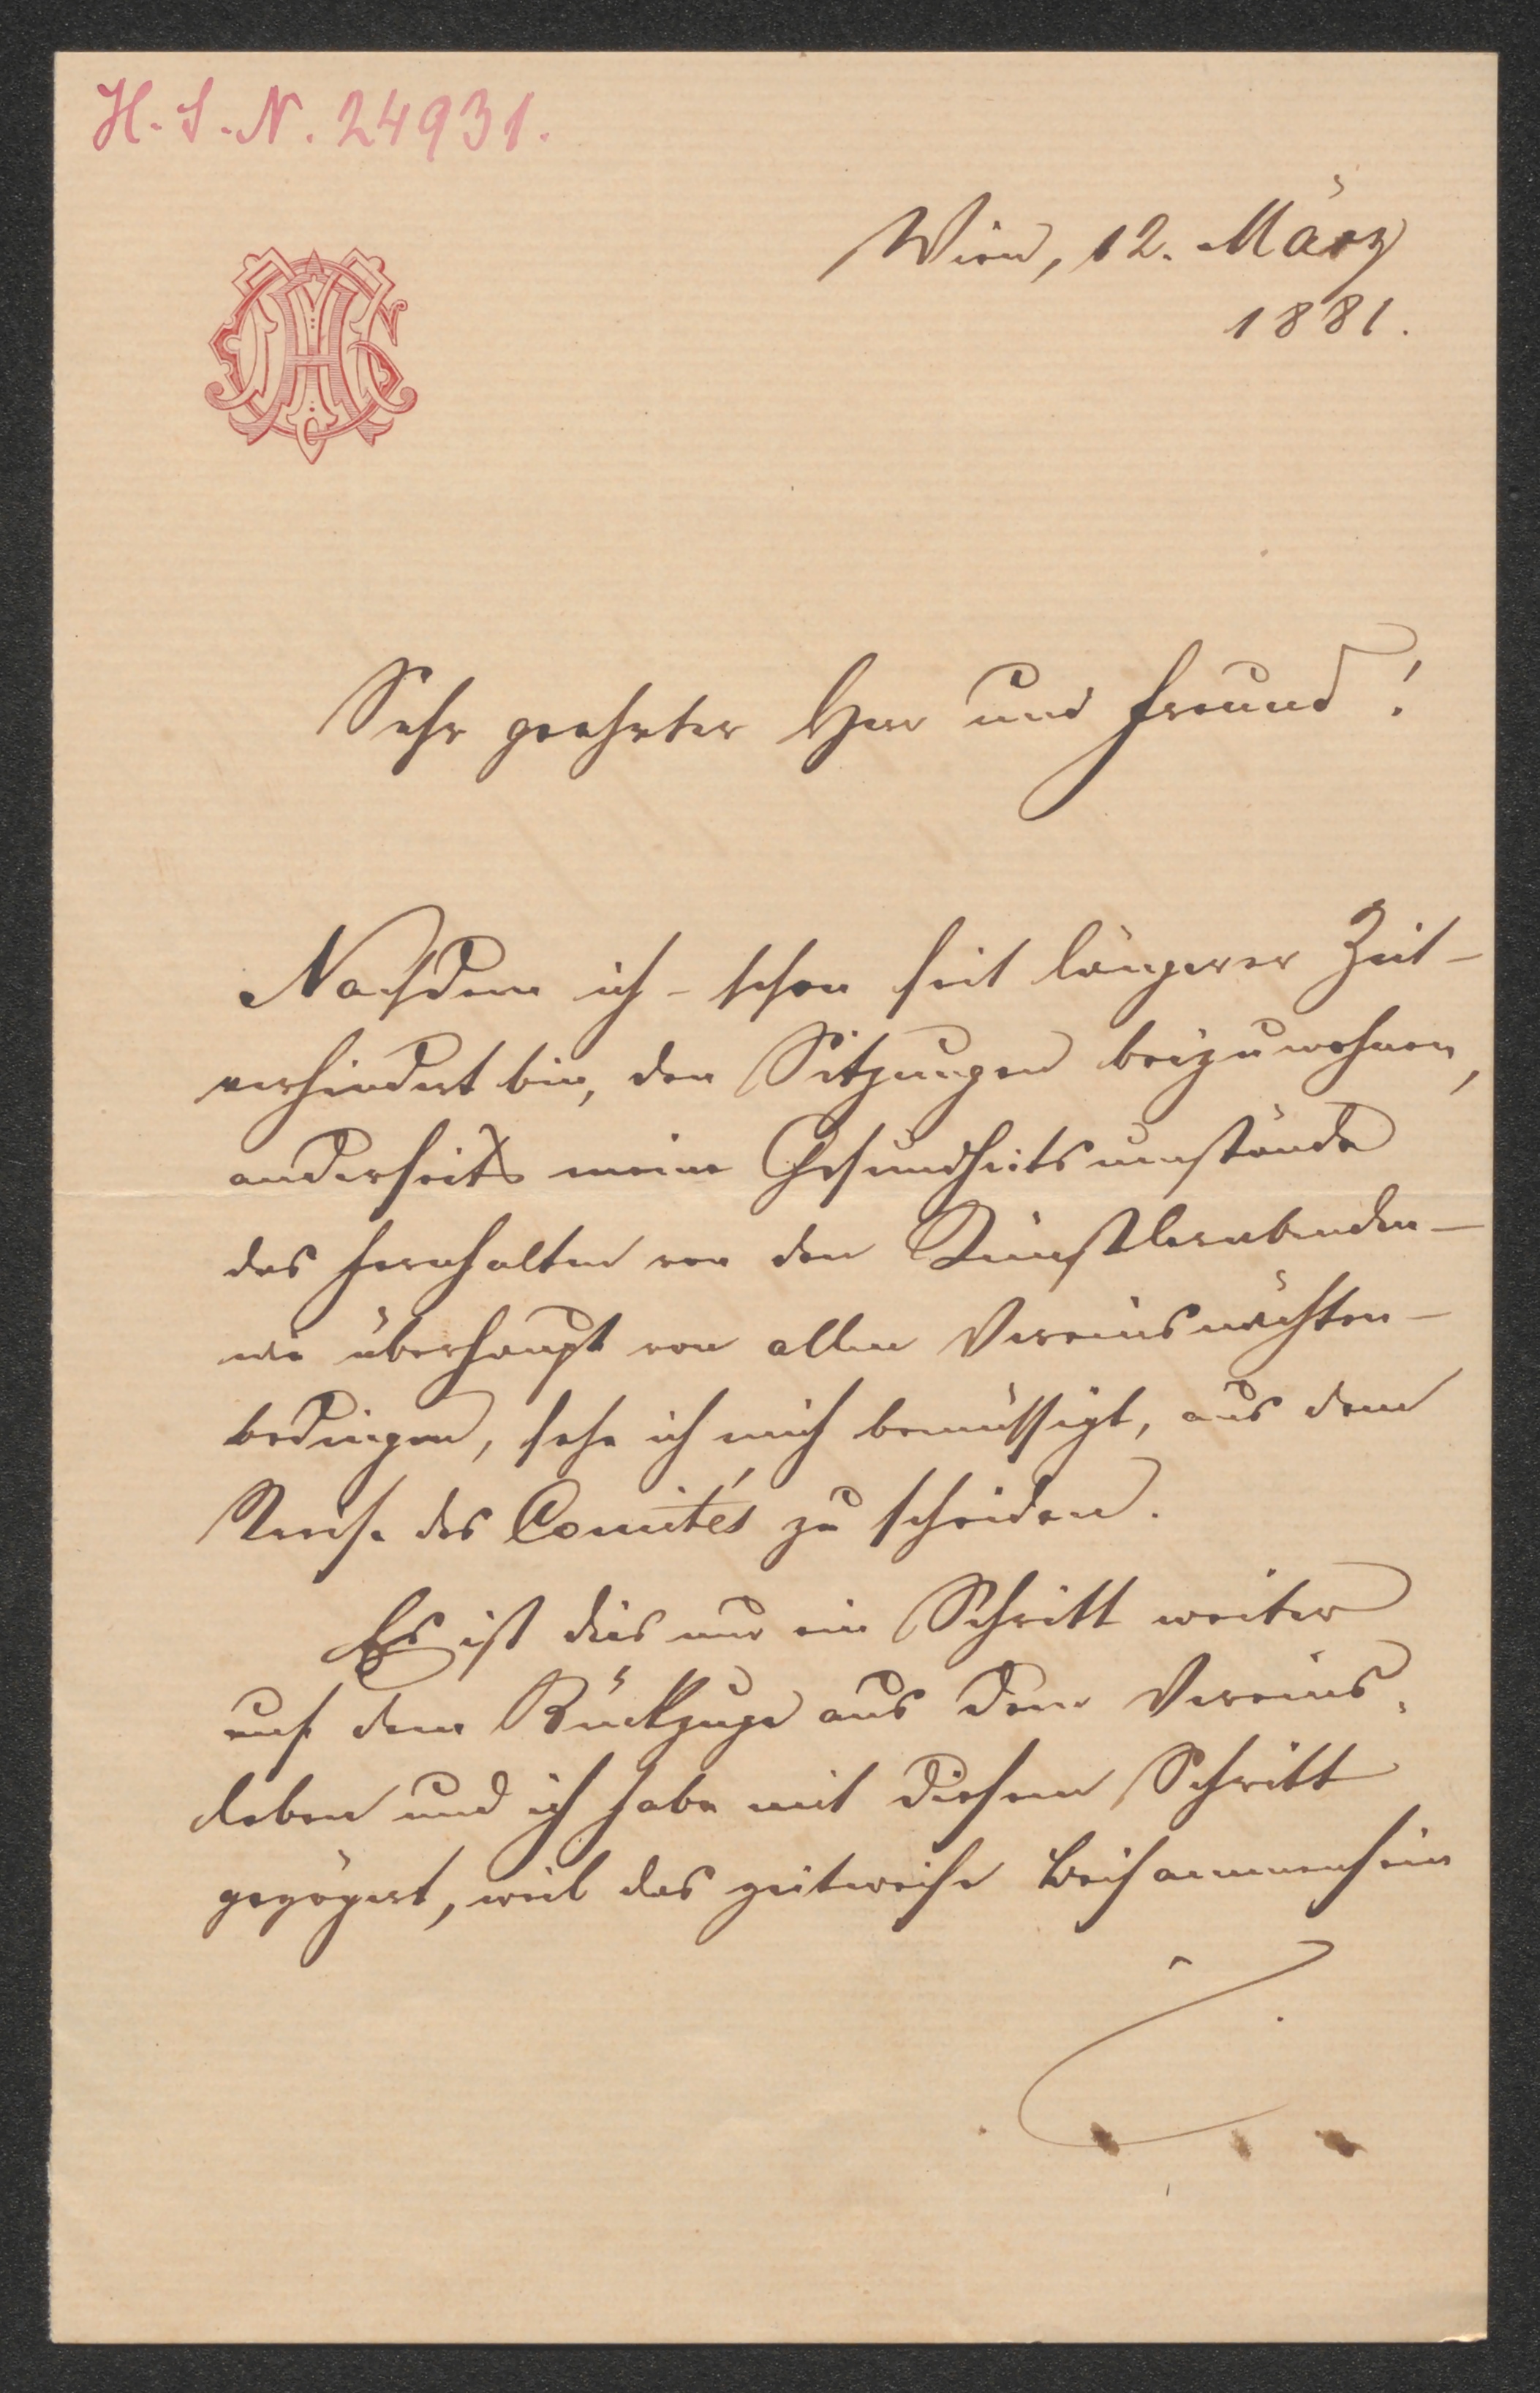 H. I. N. 24931.
Wien, 12. März
1881.
Sehr geehrter Herr und Freund!
Nachdem ich - schon seit längerer Zeit -
verhindert bin, den Sitzungen beizuwohnen,
anderseits meine Gesundheitsumstände
das Fernhalten von den Künstlerabenden -
wie überhaupt von allen Vereinsnächten -
bedingen, sehe ich mich bemüssigt, aus dem
Kreise des Comités zu scheiden.
Es ist dies nur ein Schritt weiter
auf dem Rückzuge aus dem Vereins-
leben und ich habe mit diesem Schritt
gezögert, weil das zeitweise Beisammensein